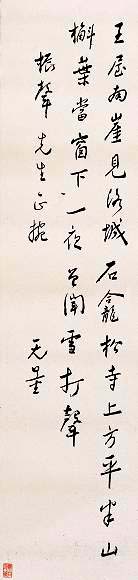 王屋南崖見洛城石龕松寺上方平半山
槲葉當窗下一夜曾聞雪打聲
振聲先生正
无量